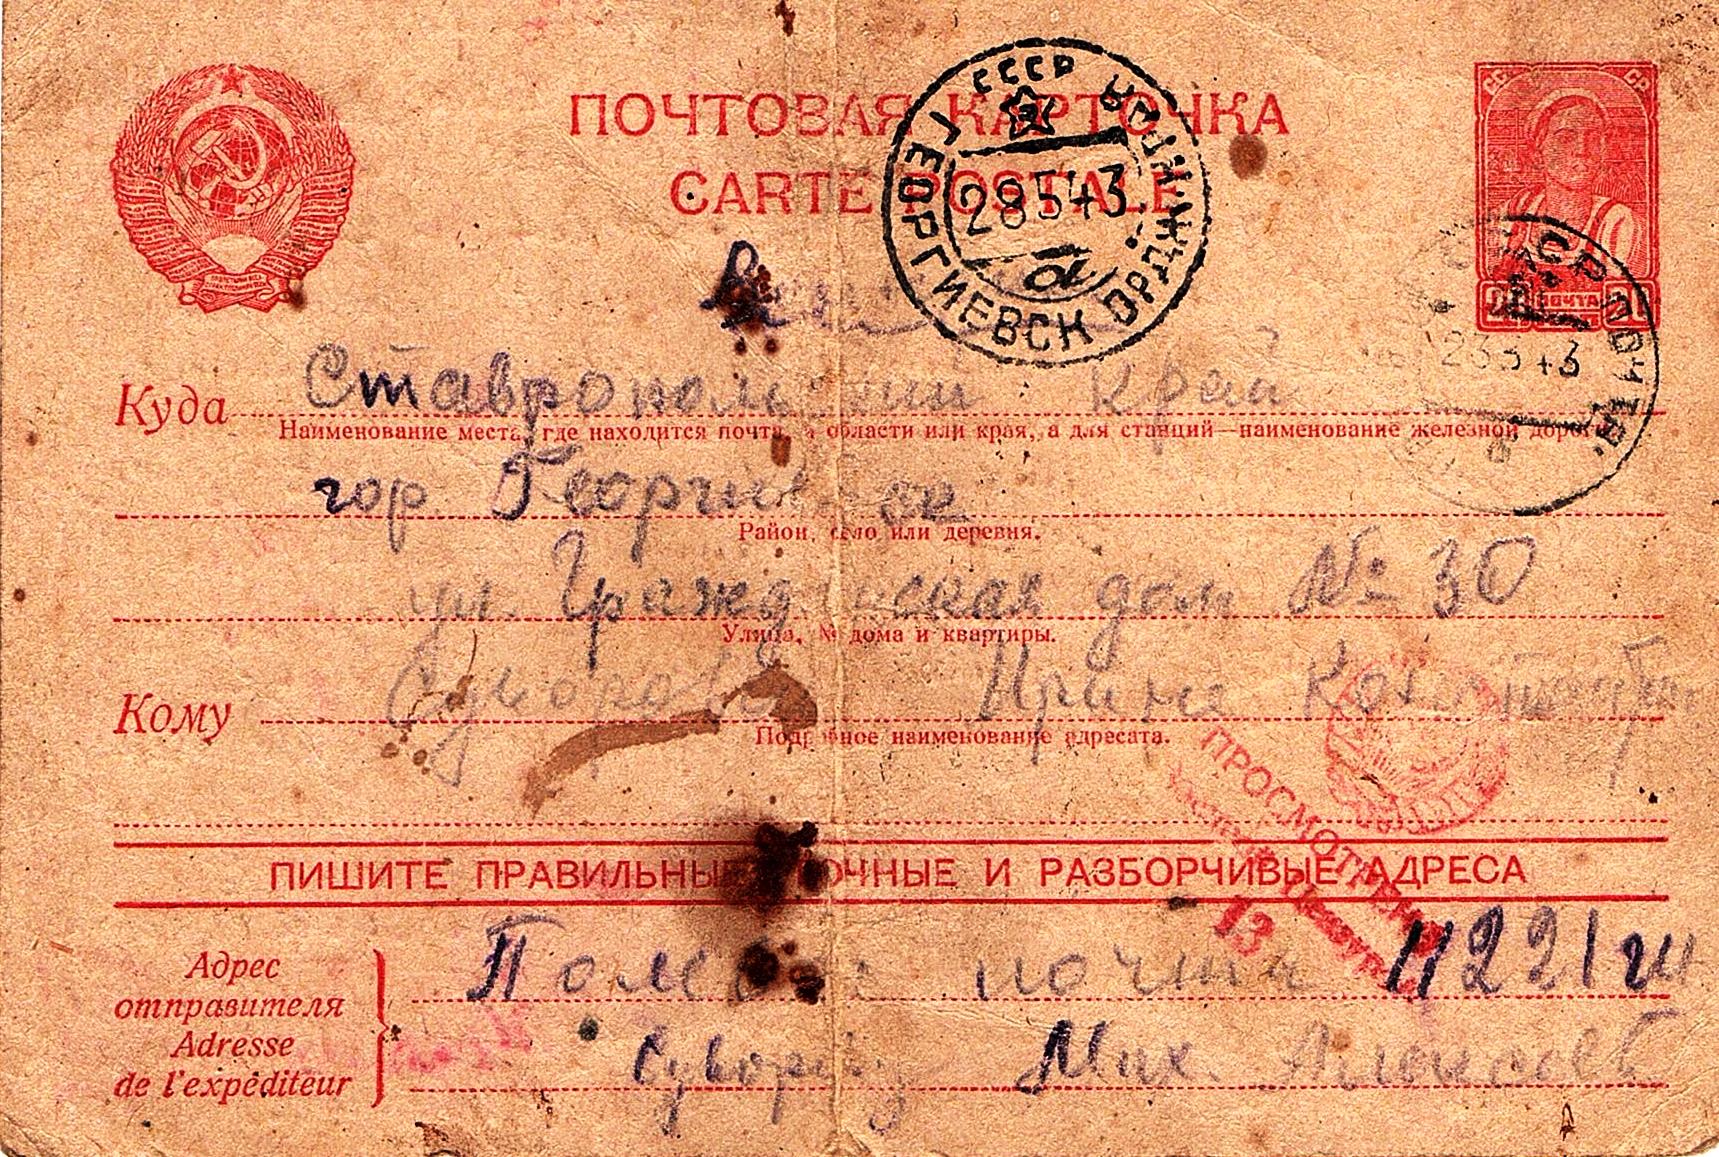 ПОЧТОВАЯ КАРТОЧКА
CARTE POSTALE
СССР
ГЕОРГИЕВСК ОРДЖ.
28 5 43
а
СССР
ПОЧТА 20
СР
23 5 43
Куда Ставропольский край
Наименование места, где находится почта, и области или края, а для станций—наименование железной дороги
гор Георгиевск
Район, село или деревня.
ул. Гражданская дом № 30
Улица, № дома и квартиры.
Кому Суворовой Ирине
Подробное наименование адресата.
ПРОСМОТРЕНО
13
ПИШИТЕ ПРАВИЛЬНЫЕ ТОЧНЫЕ И РАЗБОРЧИВЫЕ АДРЕСА
Адрес
отправителя
Adresse
de l'expéditeur
Полевая почта
Суворову Мих. Алексеев